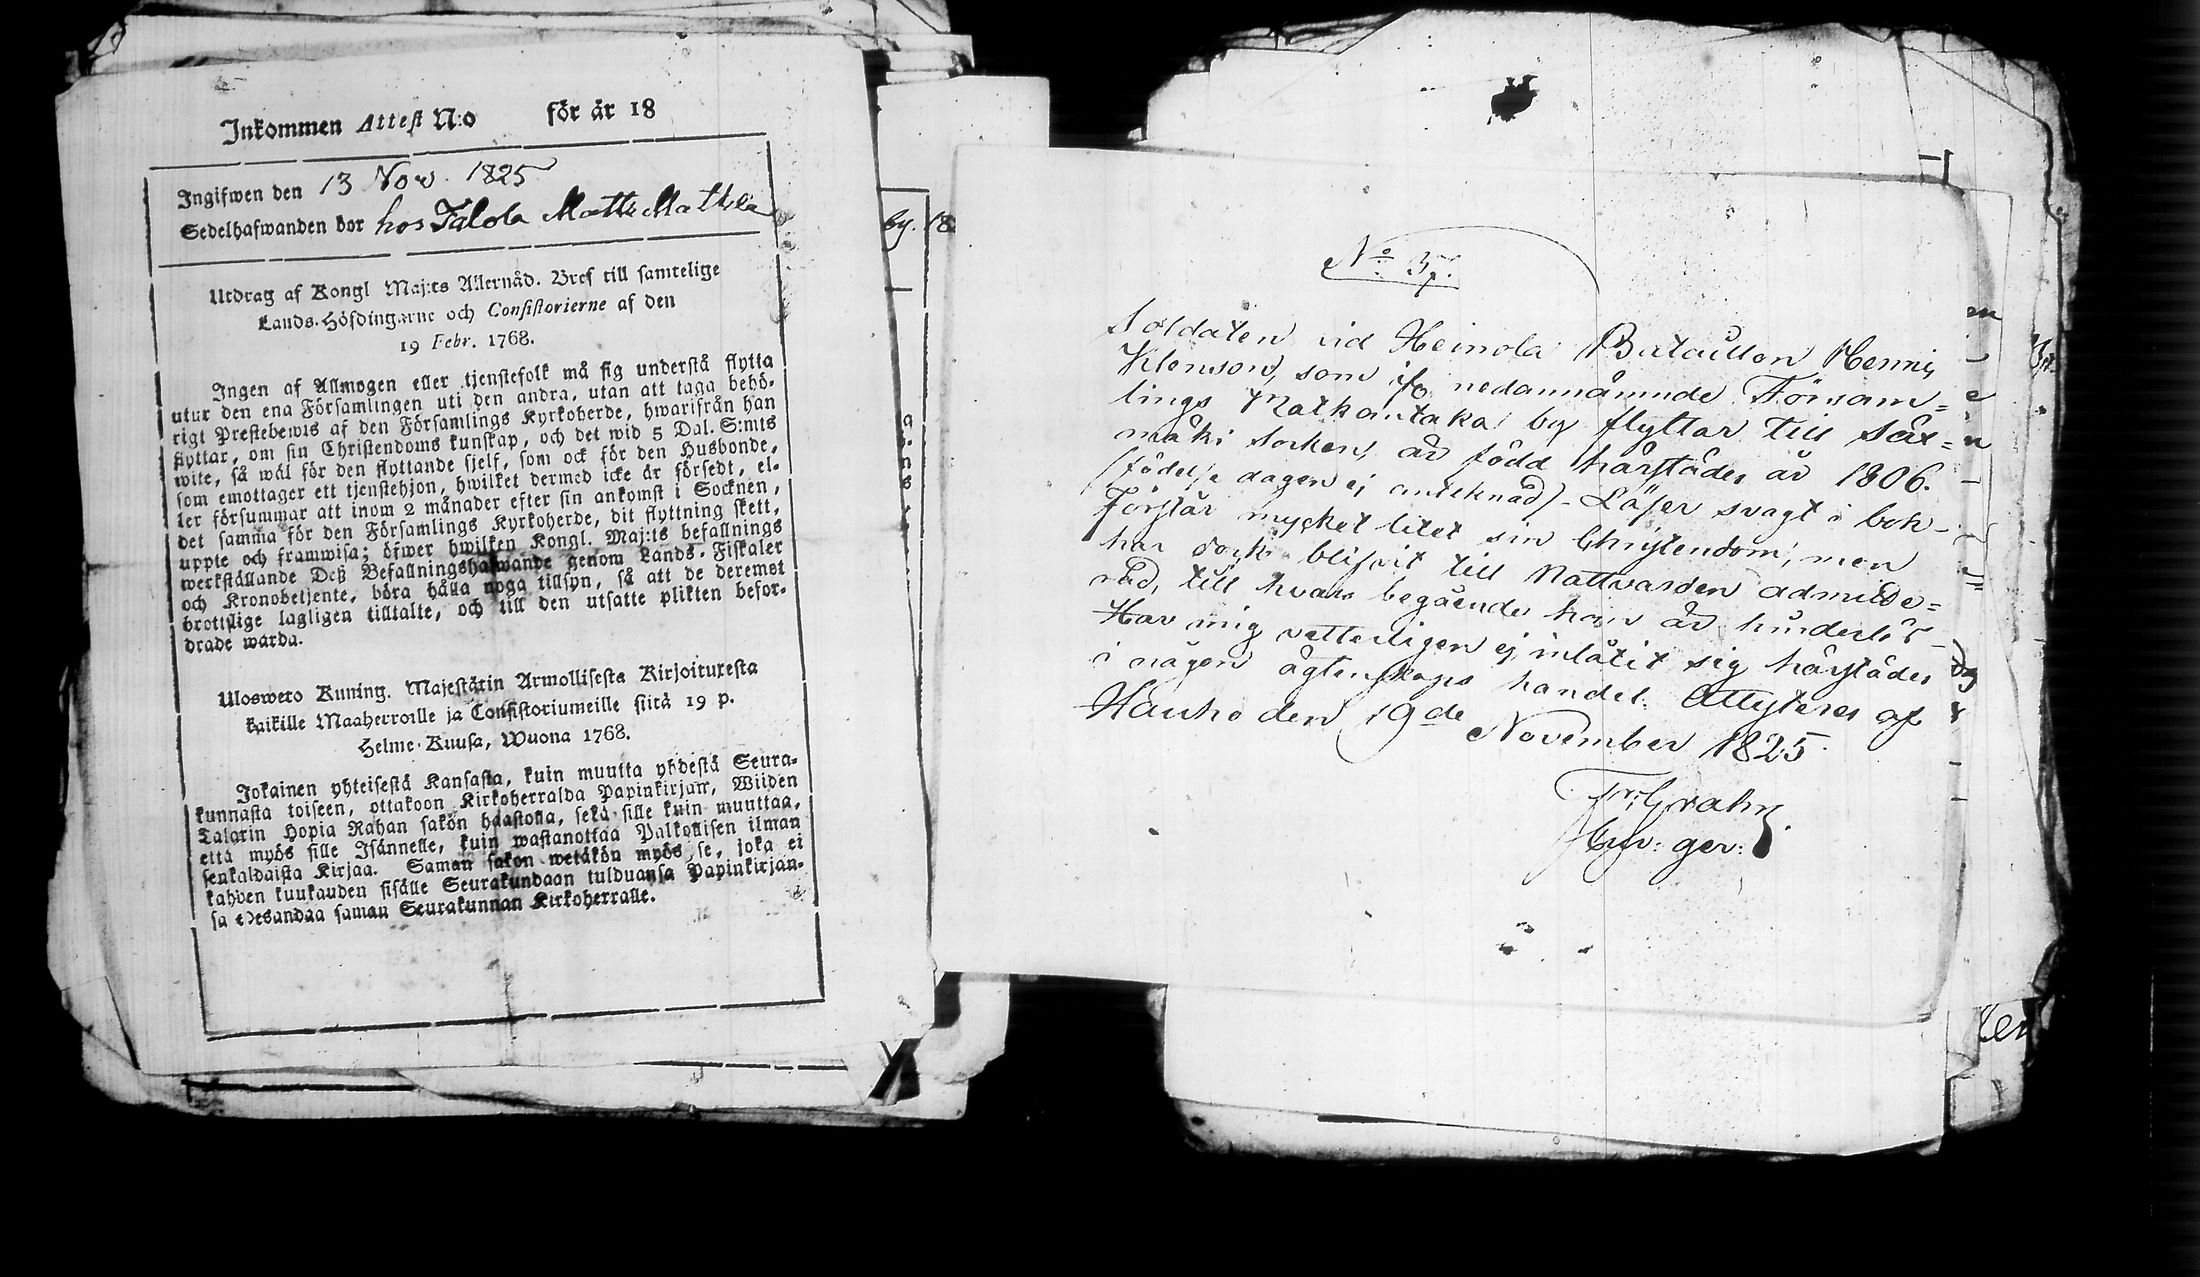 Inkommen Attest N:o för år 18
Ingifwen den 13 Nov. 1825
Sedelhafwanden bor hos Talola Matts Mattila
Utdrag af Kongl Maj:ts Allernåd. Bref till samtelige
Lands-Höfdingarne och Consistorierne af den
19 Febr. 1768.
Ingen af Allmogen eller tjenstefolk må sig understå flytta
utur den ena Församlingen uti den andra, utan att taga behö-
rigt Prestebewis af den Församlings Kyrkoherde, hwarifrån han
flyttar, om sin Christendoms kunskap, och det wid 5 Dal. S:mts
wite, så wäl för den flyttande sjelf, som ock för den Husbonde,
som emottager ett tjenstehjon, hwilket dermed icke är försedt, el-
ler försummar att inom 2 månader efter sin ankomst i Socknen,
det samma för den Församlings Kyrkoherde, dit flyttning skett,
uppte och framwisa; öfwer hwilken Kongl. Maj:ts befallnings
werkställande Deß Befallningshafwande genom Lands-Fiskaler
och Kronobetjente, böra hålla noga tillsyn, så att de deremot
brottslige lagligen tilltalte, och till den utsatte plikten befor-
drade warda.
Ulosweto Kuning. Majestätin Armollisesta Kirjoituxesta
kaikille Maaherroille ja Consistoriumeille siitä 19 p.
Helme-Kuusa, Wuona 1768.
Jokainen yhteisestä Kansasta, kuin muutta yhdestä Seura-
kunnasta toiseen, ottakoon Kirkoherralda Papinkirjan, Wiiden
Talarin Hopia Rahan sakon haastolla, sekä sille kuin muuttaa,
että myös sille Isännelle, kuin wastanottaa Palkollisen ilman
senkaldaista Kirjaa. Saman sakon wetäkön myös se, joka ei
kahden kuukauden sisälle Seurakundaan tulduansa Papinkirjan-
sa edesandaa saman Seurakunnan Kirkoherralle.
by. 18
N:o 37.
Soldaten vid Heinola Bataillon Henric
Klenson, som ifr. nedannämnde Försam=
lings Matkantaka by flyttar till Säx=
mäki Socken, är född härstädes år 1806.
(födelse dagen ej anteknad) - Läser svagt i bok -
Förstår mycket litet sin Christendom; men
har dock blifvit till Nattvarden admitte=
rad, till hvars begående han är hinderlös -
Har mig vetterligen ej inlåtit sig härstädes
i någon ägtenskaps handel. Attesteres af
Hauho den 19de November 1825.
Fr: Grahn